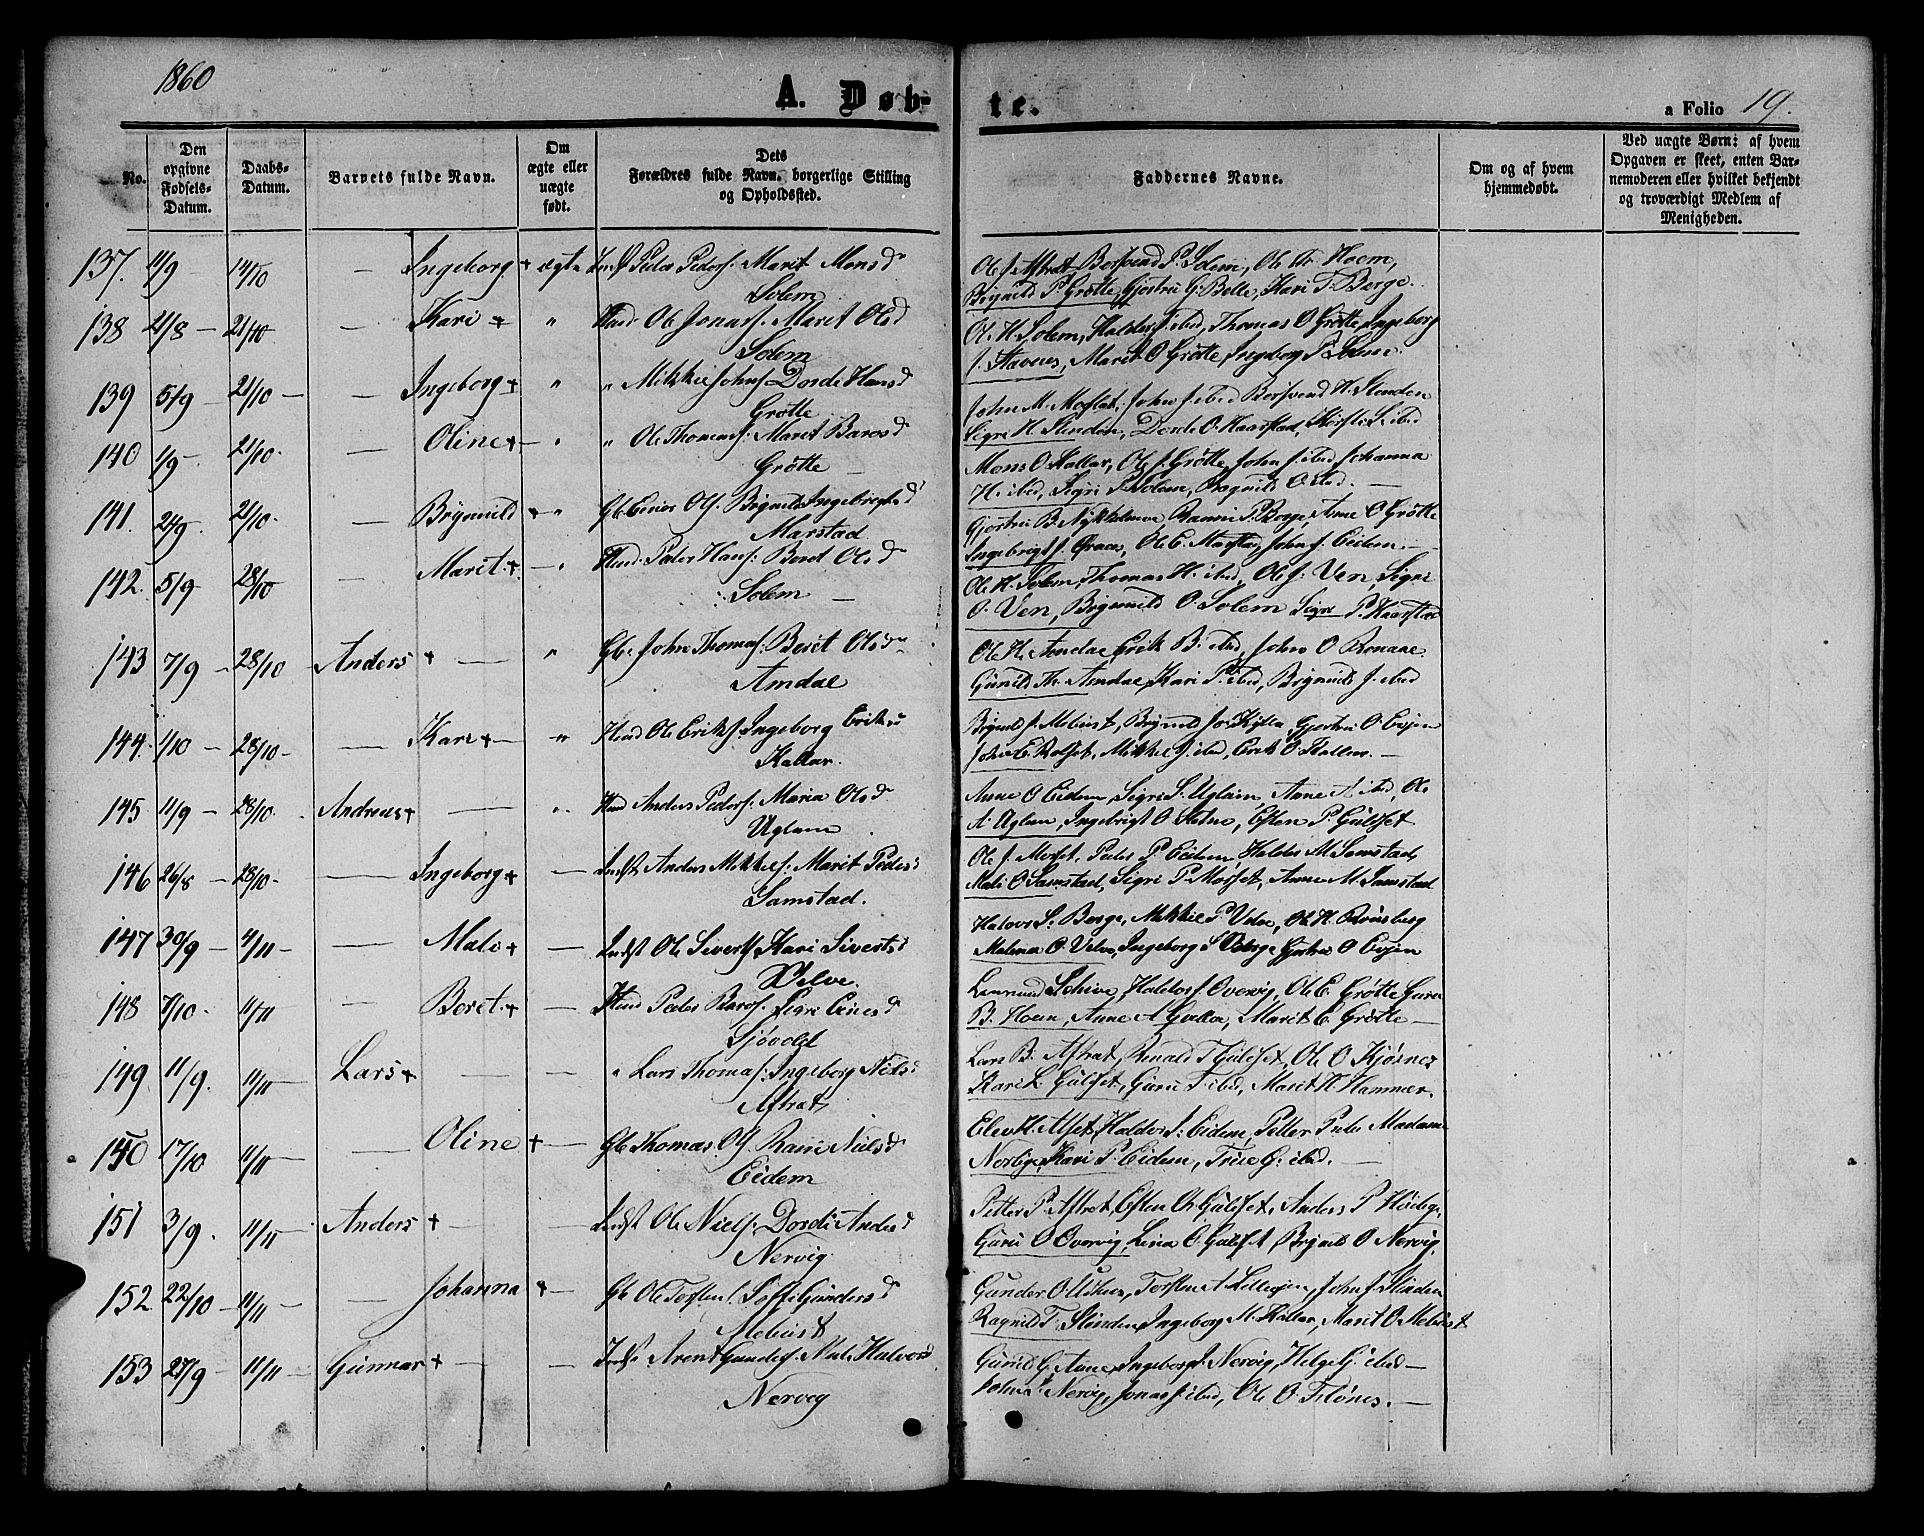 1860
A. Døb-
te.
a Folio 19.
No.
Den opgivne Fødsels-Datum.
Daabs-Datum.
Barnets fulde Navn.
Om ægte eller uægte født.
Dets Forældres fulde Navn, borgerlige Stilling og Opholdssted.
Faddernes Navne.
Om og af hvem hjemmedøbt.
Ved uægte Børn: af hvem Opgaven er skeet, enten Barnemoderen eller hvilket bekjendt og troværdigt Medlem af Menigheden.
137. 11/9 - 14/10 — Ingeborg + ægte Peder Peders. Marit Monsd
Solem
Ole J. Aftrat Bersvend P. Solem, Ole Hoem,
Brynild P. Grøtte, Gjertru G. Belle, Kari T. Berge.
138 21/8 - 21/10 — Kari + " Huud Ole Jonas. Marit Olsd
Solem
Ol. H. Solem, Haldor J. ibd, Thomas O Grøtte, Ingeborg
J. Stavenes, Marit O Grøtte, Ingeborg P. Solem.
139 5/9 - 21/10 — Ingeborg + " " Mikkel Johns. Dordi Hansd
Grøtte
John M. Moslet, John J. ibd Bersvend H. Slinden
Sigri H. Slinden, Dordi O. Haarstad, ibd
140 1/9 - 21/10 - Oline + — " " Ole Thomas. Marit Barosd
Grøtte —
Mons O. Kallar, Ole J. Grøtte, John J. ibd Johanna
H. ibd, Sigri P. Solem, Ragnild O. ibd. —
141. 21/10 - — Brynild + - " Gb. Einer Ols. Brynild Ingebrigtsd
Marstad
Gjertru B. Nykkelmoe, Ranni P. Berge, Anne O Grøtte
Ingebrigt J. Ole E. Marstad, John J. Eidem. —
142. 5/9 - 28/10 — Marit. + — " Huud Peder Hans. Beret Olsd
Solem —
Ole H. Solem, Thomas H. ibd, Ole J. Ven, Sigri
O. Ven, Brynild O. Solem Sigri P. Haarstad
143 7/9 - 28/10 - Anders + — " Gb. John Thomas. Beret Olsd
Amdal
Ole H. Amdal, Erik B. ibd, John O
Gunild Th. Amdal, Kari P. ibd, Brynild J. ibd
144. 1/10 - 28/10 - — Kari + — " Huud Ole Eriks. Ingeborg Eriksd
Kallar.
Brynild J. Mebust, Brynild Jo Kylla, Gjertru O Evjen
John E. Rolset, Mikkel J. ibd, Erik O. Kallar. —
145 11/9 - 28/10. Andreas + — " Huud Anders Peders. Maria Olsd
Uglem
Anne O Eidem, Sigri S. Uglem Anne A. ibd, Ole
A. Uglem, Ingebrigt O. Selnæ, Esten P. Gulset
146 26/8 - 28/10 - — Ingeborg + — Indst Anders Mikkels. Marit Pedersd
Samstad.
Ole J. Morset, Peder P. Eidem, Haldor M Samstad,
Mali O Samstad, Sigri P. Morset, Anne M. Samstad
147 30/9 - 4/11 - — Mali + — Indst Ole Siverts. Kari Sivertsd
Velve.
Halvor S. Berge, Mikkel P Velve, Ole H. Rønsberg
Malena O. Velve, Ingeborg S Berge Gjertru O Evjen
148 7/10 - 11/11 — Beret + — Huud Peder Baros. Sigri Einersd
Sjøvold
Schive, Haldor J. Overvig, Ole E. Grøtte Guru
B. Hoem, Anne A Marit E. Grøtte —
149. 11/9. 11/11 — Lars + — — " Lars Thomas. Ingeborg Nilsd
Aftrat,
Lars B. Aftrat, T Gulset, Ole O Kjøsnes
Kari L Gulset, Guru T. ibd, Marit H. Hammer.
150 17/10 11/11 — Oline + — Gb Thomas Ols. Ranni Nilsd
Eidem
Elev H. Alset, Haldor J. Eidem, Petter Madam
Kari P. Eidem, G. ibd. —
151 3/9. 11/11 Anders + — — Indst Ole Niels. Dordi Andersd
Nervig
Petter P. Aftret, Esten O. Gulset, Anders P Høiby.
Guru O. Overvig, O. Gulset, Brynild O Nervig.
152 22/10 - 11/11 — — Johanna + — Gb Ole Torsten. Gundersd
Mebust
Gunder O Torsten A John J. Slinden
Ragnild T. Slinden, Ingeborg M. Kallar, Marit O Mebust
153 27/9 - 11/11 — Gunnar + — — Indst Arent Gunders. Mali Halvorsd
Nervig
Gunild G. Aune, Ingeborg J. Nervig, Helge G. ibd —
John Nervig, Jonas J. ibd, Ole O. Flønes. —